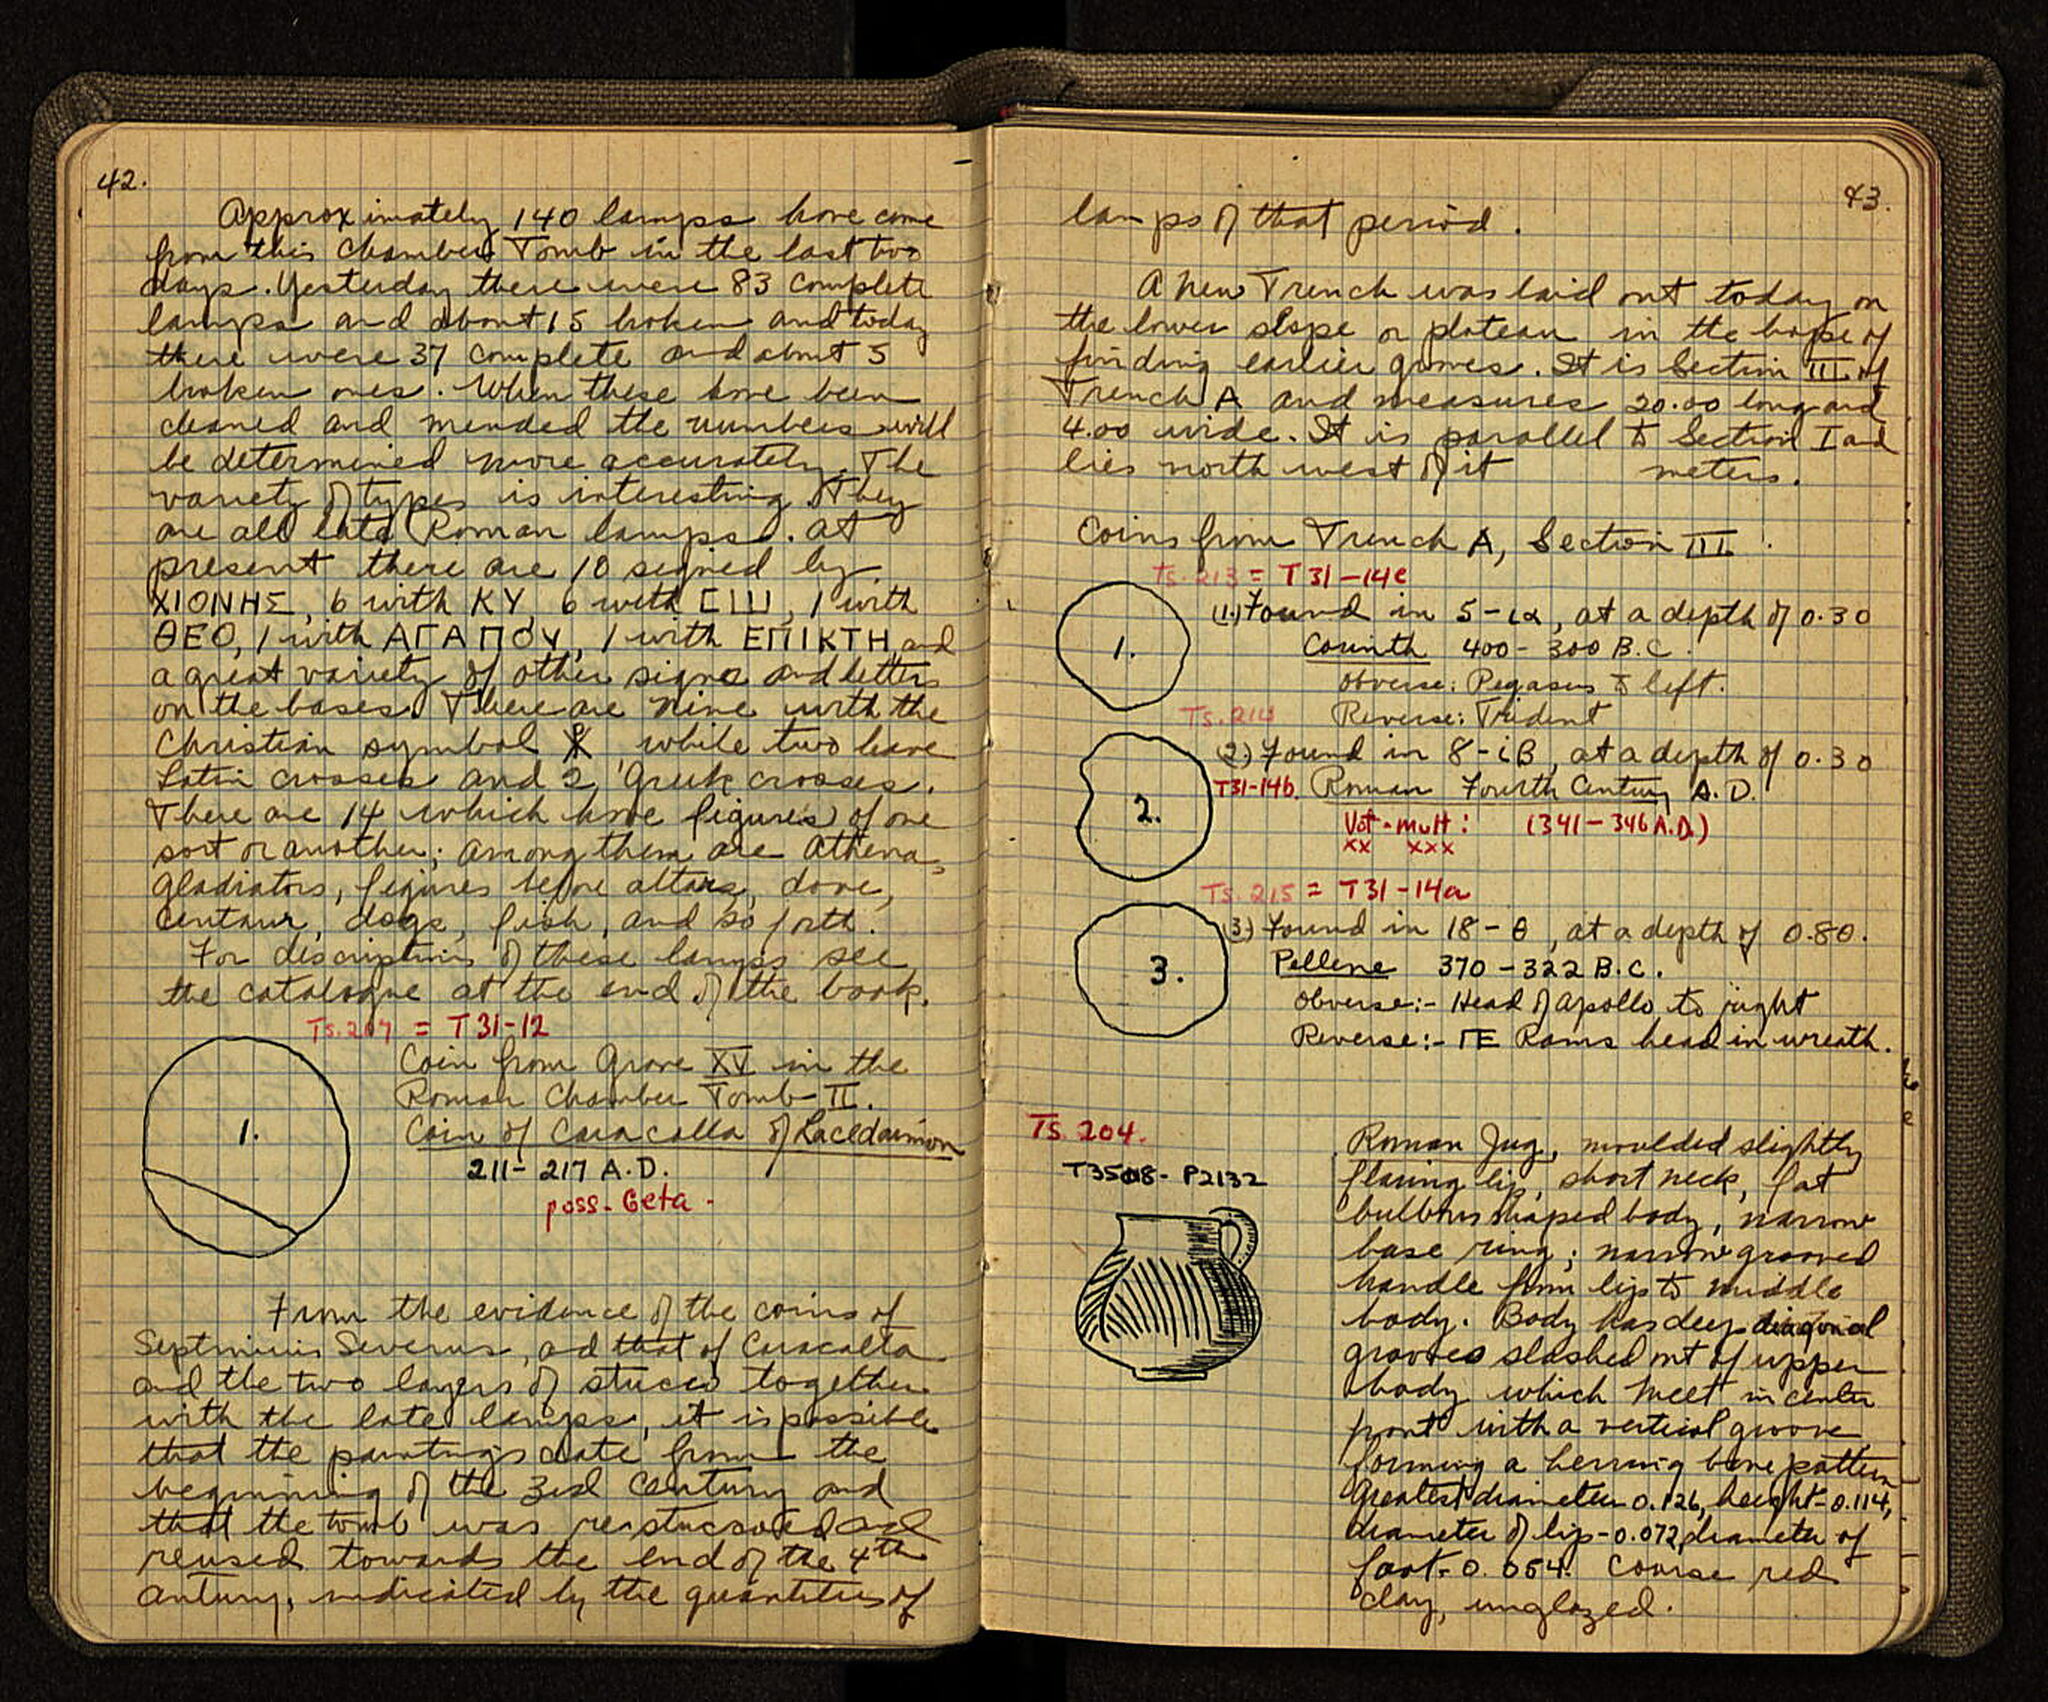 42.
Approximately 140 lamps have come
from this Chamber Tomb in the last two
days. Yesterday there were 83 complete
lamps and about 15 broken and today
there were 37 complete and about 5
broken ones. When these have been
cleaned and mended the numbers will
be determined more accurately. The
variety of types is interesting. They
are all late Roman lamps. At
present there are 10 signed by
ΧΙΟΝΗΣ, 6 with ΚΥ, 6 with , 1 with
ΘΕΟ, 1 with ΑΓΑΠΟΥ, 1 with ΕΠΙΚΤΗ and
a great variety of other signs and letters
on the bases. There are nine with the
Christian symbol ☧ while two have
Latin crosses and 2 Greek crosses.
There are 14 which have figures of one
sort or another; among them are Athena,
gladiators, figures before altars, dove,
centaur, dogs, fish, and so forth.
For descriptions of these lamps see
the catalogue at the end of the book.
Ts. 207 = T31-12
1.
Coin from Grave XV in the
Roman Chamber Tomb II.
Coin of Caracalla of Lacedaimon
211-217 A.D.
poss. Geta -
From the evidence of the coins of
Septimius Severus, ad that of Caracalla
and the two layers of stucco together
with the late lamps, it is possible
that the paintings date from the
beginning of the 3rd Century and
that the tomb was restuccoed and
reused towards the end of the 4th
century, indicated by the quantities of
43.
lamps of that period.
A new Trench was laid out today on
the lower slope or plateau in the hope of
finding earlier graves. It is Section III of
Trench A and measures 20.00 long and
4.00 wide. It is parallel to Section I and
lies north west of it meters.
Coins from Trench A, Section III.
Ts. 213 = T31-14c
1.
(1.) Found in 5-ια, at a depth of 0.30
Corinth 400-300 B.C.
Obverse: Pegasus to left.
Reverse: Trident
Ts. 214
2.
(2) Found in 8-ιβ, at a depth of 0.30
T31-14b. Roman Fourth Century A.D.
Vot. mult: (341-346 A.D.)
xx xxx
Ts. 215 = T31-14a
3.
(3) Found in 18-θ, at a depth of 0.80.
Pellene 370-322 B.C.
Obverse:- Head of Apollo to right
Reverse:- ΓΕ Rams head in wreath.
Ts. 204.
T3508- P2132
Roman Jug, moulded slightly
flaring lip, short neck, fat
bulbous shaped body, narrow
base ring; narrow grooved
handle from lip to middle
body. Body has deep diagonal
grooves slashed out of upper
body which meet in center
front with a vertical groove
forming a herring bone pattern
Greatest diameter 0.126, height-0.114,
diameter of lip-0.072, diameter of
foot-0.054. Coarse red
clay, unglazed.